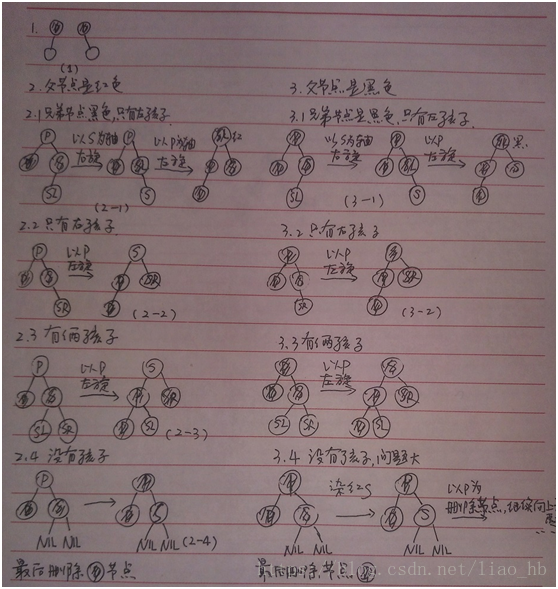 1.
(1)
2. 父节点是红色
3. 父节点是黑色
2.1 兄弟节点黑色,只有左孩子
3.1 兄弟节点是黑色,只有左孩子
P 以S为轴右旋 P 以P为轴左旋 红
以S为轴右旋 以P左旋 黑
SL S
SL S
(2-1)
(3-1)
2.2 只有右孩子
3.2 只有右孩子
P 以P左旋 S
以P左旋
SR SR
SR SR
(2-2)
(3-2)
2.3 有俩孩子
3.3 有俩孩子
P 以P左旋 S
以P左旋
SL SR SL SR
SL SR SL SR
(2-3)
2.4 没有孩子
3.4 没有孩子,问题大
P
染红S
以P为删除节点,继续向上
S
S
NIL NIL NIL NIL (2-4)
NIL NIL NIL NIL
最后删除 D 节点
最后删除节点 D
http://blog.csdn.net/liao_hb